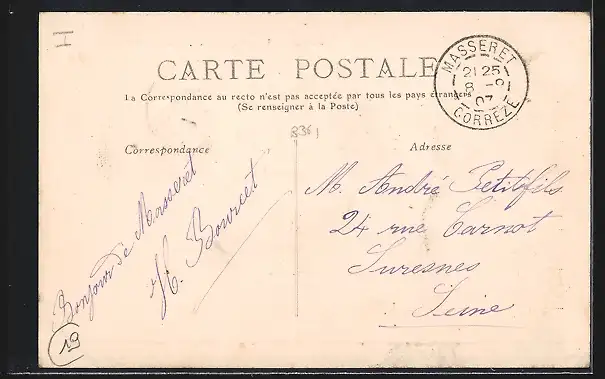 CARTE POSTALE
La Correspondance au recto n'est pas acceptée par tous les pays étrangers
(Se renseigner à la Poste)
MASSERET
21 25
8 - 9
07
CORRÈZE
836
Correspondance
Adresse
Bonjour de Masseret
H. Bourcet
M. André Petitfils
24 rue Carnot
Suresnes
Seine
19